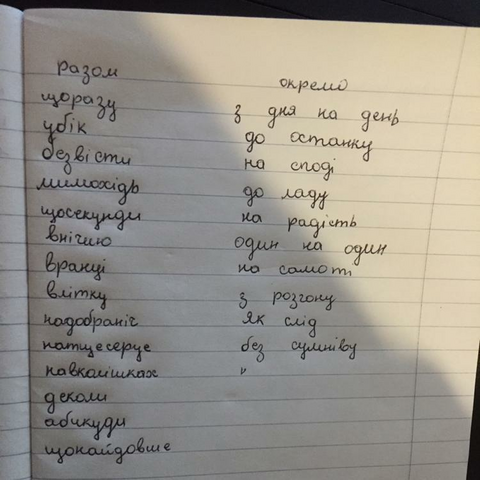 разом окремо
щоразу з дня на день
убік до останку
безвісти на споді
мимохідь до ладу
щосекунди на радість
внічию один на один
вранці на самоті
влітку з розгону
надобраніч як слід
натщесерце без сумніву
навкарішках "
деколи
абикуди
щонайдовше